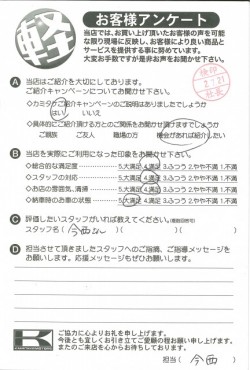 軽
お客様アンケート
当店では、お買い上げ頂いたお客様の声を可能
な限り現場に反映し、お客様により良い商品と
サービスを提供する事に努めています。
大変お手数ですが是非お声をお聞かせ下さい。
A 当店はご紹介を大切にしております。
ご紹介キャンペーンについてお聞かせ下さい。
◇カミタケご紹介キャンペーンのご説明はありましたでしょうか
はい いいえ
◇具体的にご紹介頂ける方とのご関係をお聞かせ頂けますでしょうか
ご親族 ご友人 職場の方 機会があれば紹介したい
B 当店を実際にご利用になった印象をお聞かせ下さい。
◇総合的な満足度 5.大満足 4.満足 3.ふつう 2.やや不満 1.不満
◇スタッフの対応 5.大満足 4.満足 3.ふつう 2.やや不満 1.不満
◇お店の雰囲気、清掃 5.大満足 4.満足 3.ふつう 2.やや不満 1.不満
◇納車時のお車の状態 5.大満足 4.満足 3.ふつう 2.やや不満 1.不満
C 評価したいスタッフがいれば教えてください。(複数回答可)
スタッフ名( 今西さん )
D 担当させて頂きましたスタッフへのご指導、ご指導メッセージを
お願いします。応援メッセージもぜひお願いします。
K
ご協力に心よりお礼を申し上げます。
今後とも宜しくお引き立てご愛顧の程お願い申し上げます。
またのご来店を心からお待ちしております。
担当( 今西 )